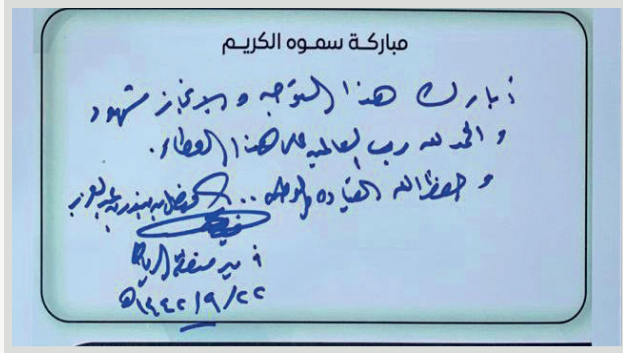 مباركة سموه الكريم
أبارك هذا التوجه والإنجاز مشهود
والحمد لله رب العالمين على هذا العطاء.
وحفظ الله القيادة والوطن ... فيصل بن بندر بن عبدالعزيز
أمير منطقة الرياض
١٤٤٢/٩/٢٢هـ